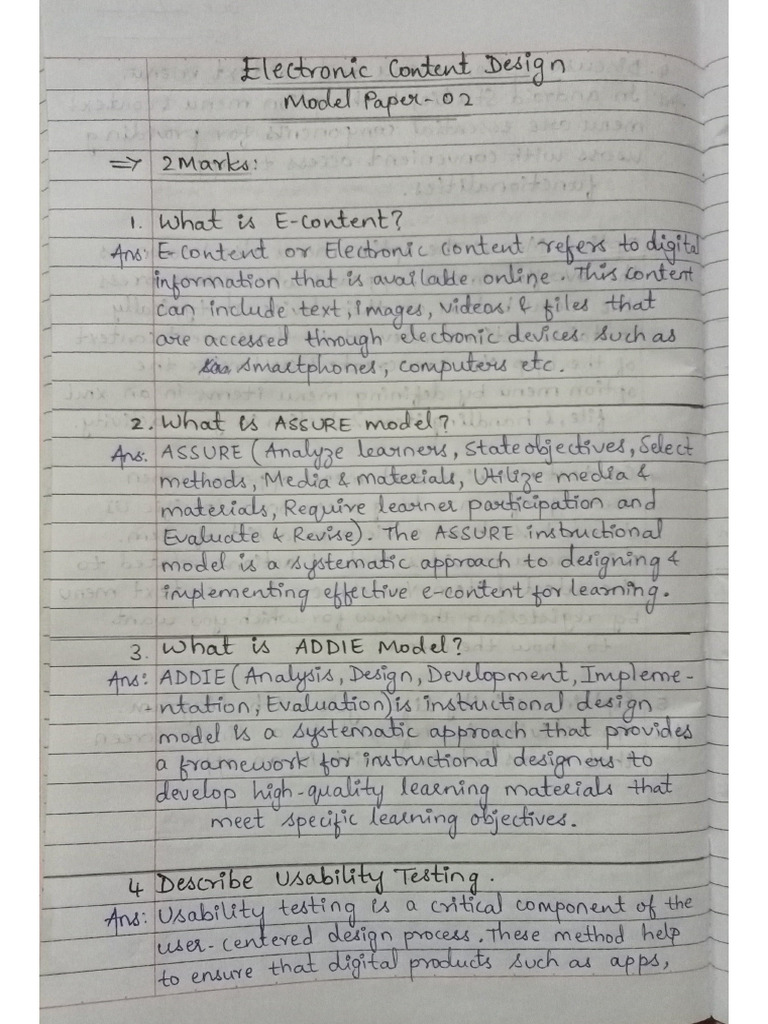 Electronic Content Design
Model Paper-02
⇒ 2 Marks:
1. What is E-content?
Ans: E-content or Electronic content refers to digital
information that is available online. This content
can include text, images, videos & files that
are accessed through electronic devices such as
smartphones, computers etc.
2. What is ASSURE model?
Ans: ASSURE (Analyze learners, State objectives, Select
methods, Media & materials, Utilize media &
materials, Require learner participation and
Evaluate & Revise). The ASSURE instructional
model is a systematic approach to designing &
implementing effective e-content for learning.
3. What is ADDIE Model?
Ans: ADDIE (Analysis, Design, Development, Impleme-
-ntation, Evaluation) is instructional design
model is a systematic approach that provides
a framework for instructional designers to
develop high-quality learning materials that
meet specific learning objectives.
4 Describe Usability Testing.
Ans: Usability testing is a critical component of the
user-centered design process. These method help
to ensure that digital products such as apps,